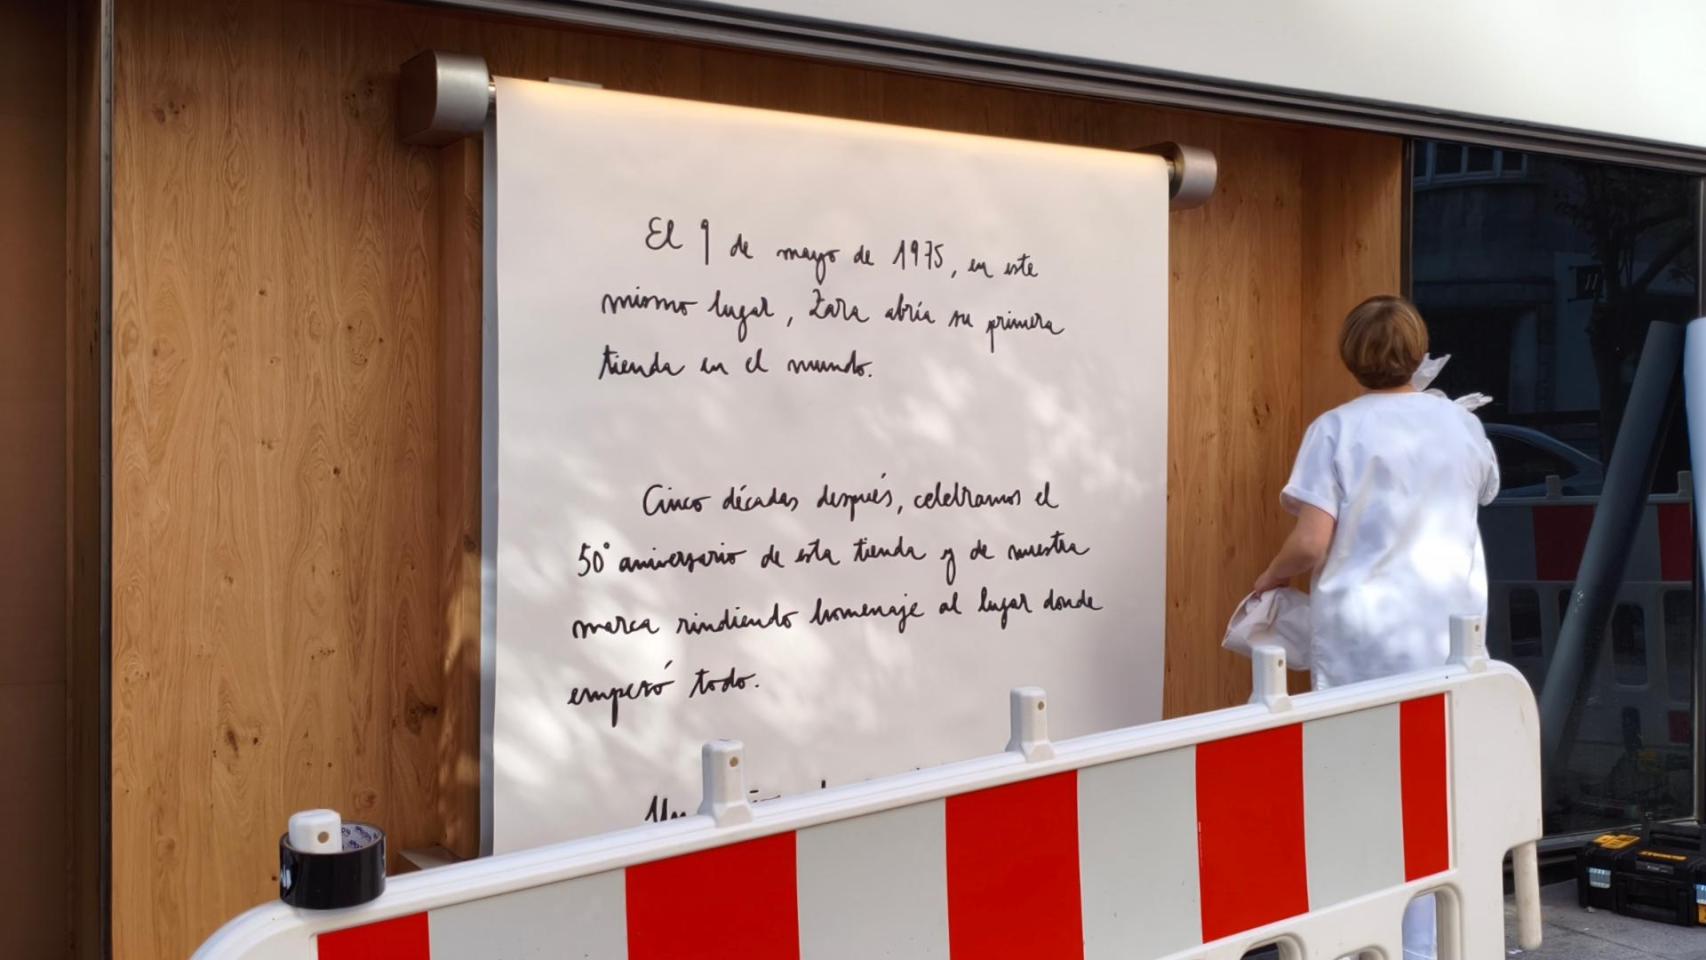 El 9 de mayo de 1975, en este
mismo lugar, Zara abría su primera
tienda en el mundo.
Cinco décadas después, celebramos el
50° aniversario de esta tienda y de nuestra
marca rindiendo homenaje al lugar donde
empezó todo.